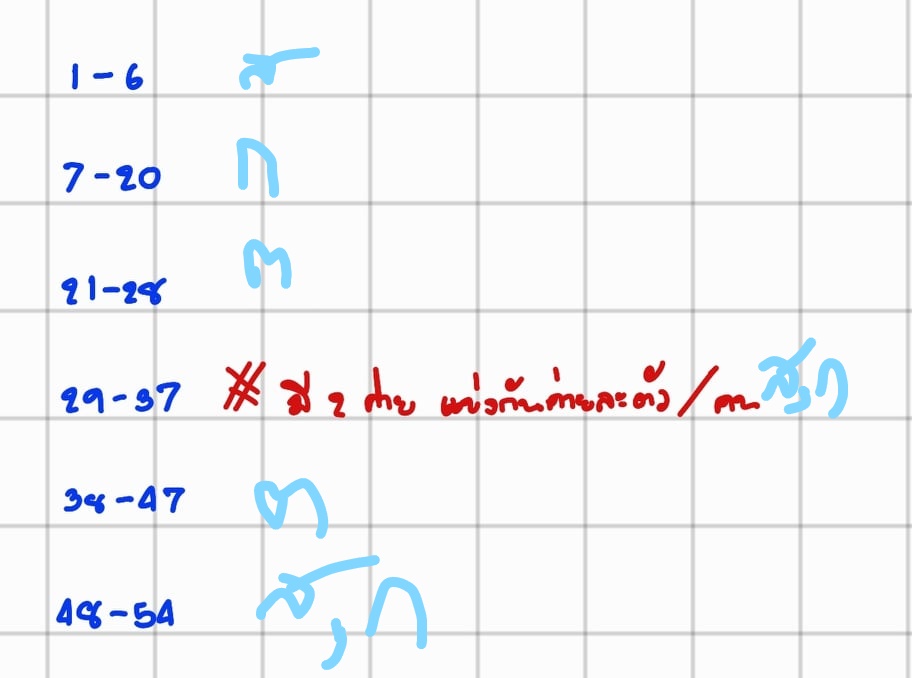 1-6
7-20 ก
21-28 ต
29-37 # มี 2 ฝ่าย แบ่งกันฝ่ายละตัว/คน ส,ก
38-47 ต
48-54 ส,ก